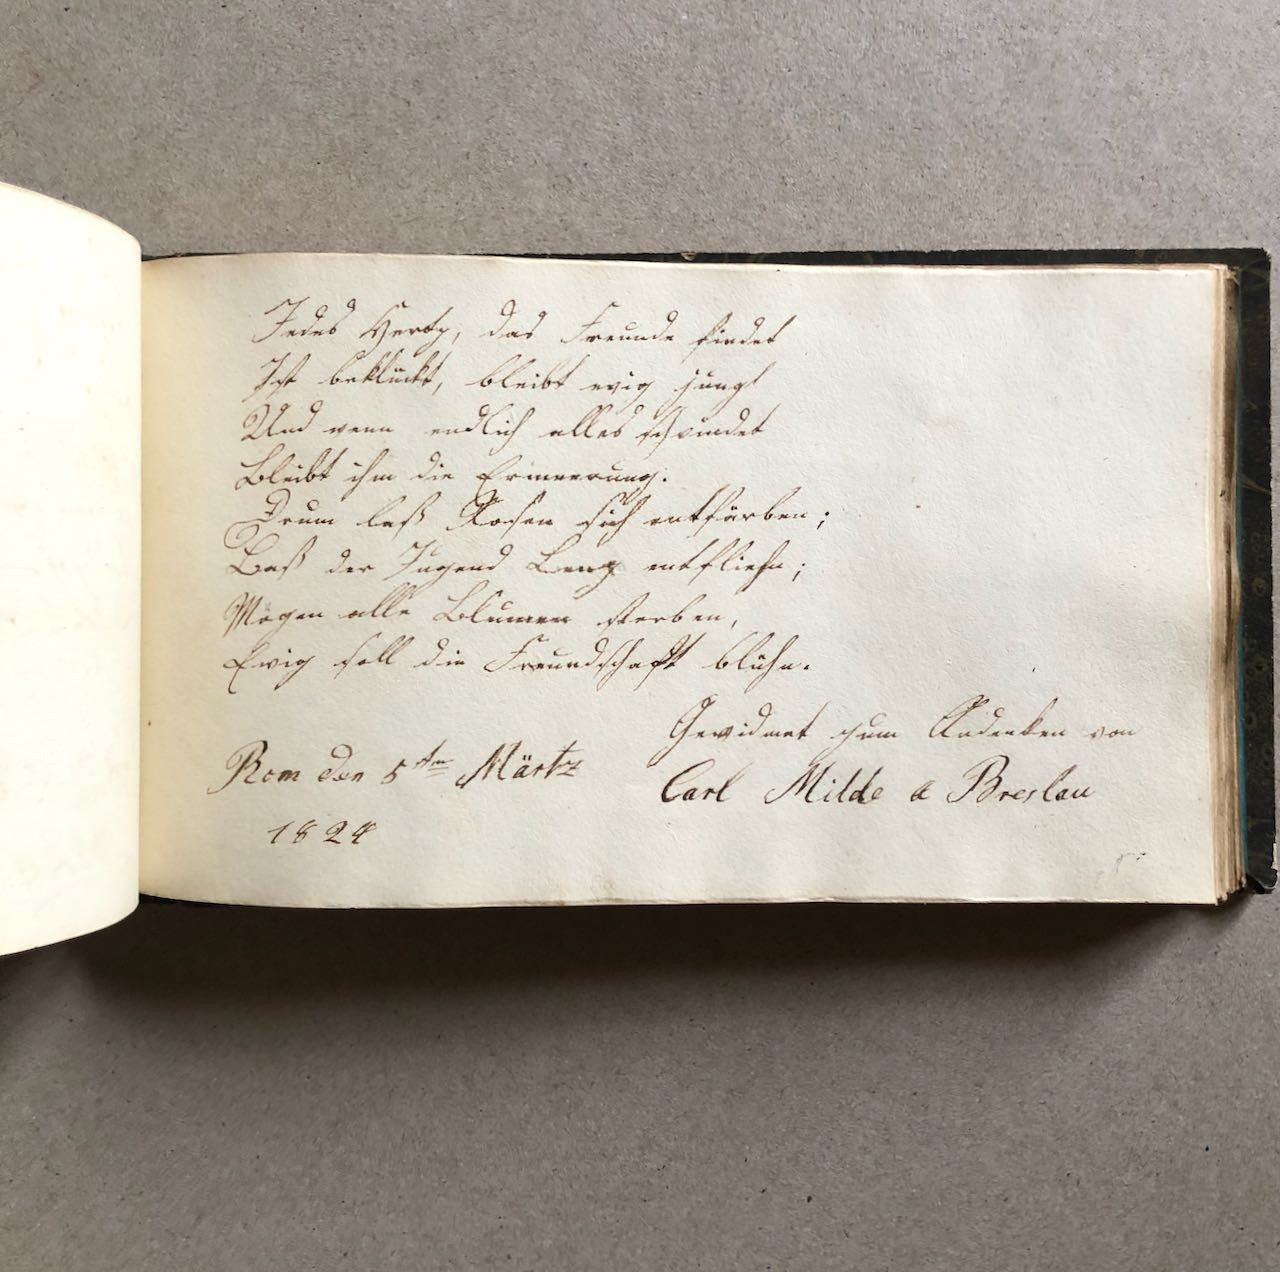 Jedes Hertz, das Freunde findet
Ist beklückt, bleibt ewig jung!
Und wenn endlich alles schwindet
Bleibt ihm die Erinnerung.
Drum laß Rosen sich entfärben;
Laß der Jugend Lenz entfliehn;
Mögen alle Blumen sterben,
Ewig soll die Freundschaft blühn.
Gewidmet zum Andenken von
Rom den 5ten Märtz
Carl Milde a Breslau
1824